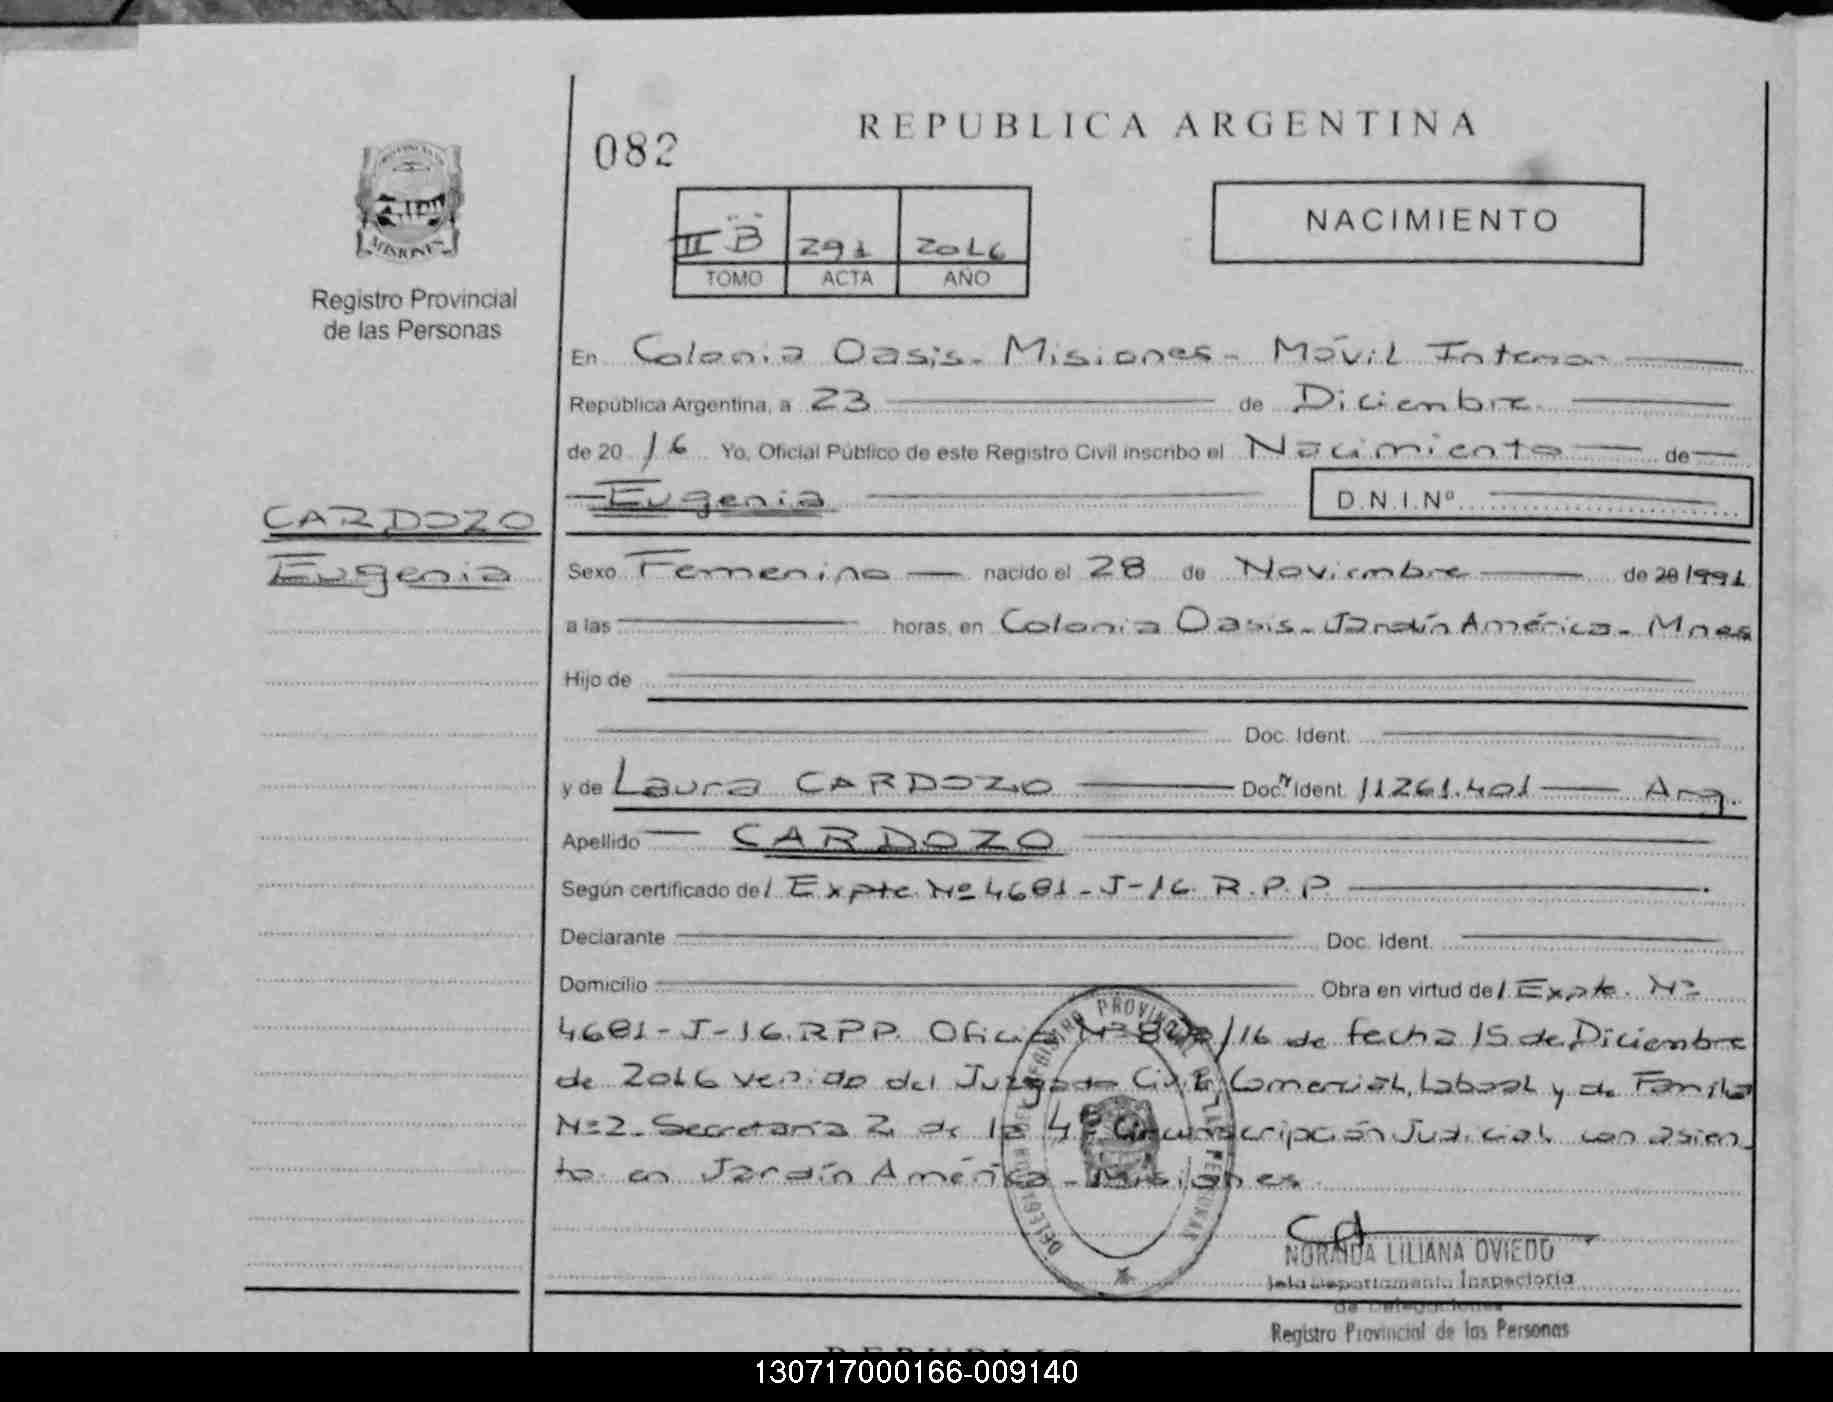 REPUBLICA ARGENTINA
082
NACIMIENTO
II B 291 2016
TOMO ACTA AÑO
MISIONES
Registro Provincial
de las Personas
En Colonia Oasis - Misiones - Móvil Interior
República Argentina, a 23 de Diciembre
de 2016 Yo, Oficial Público de este Registro Civil inscribo el Nacimiento de
Eugenia D.N.I.Nº
CARDOZO
Eugenia
Sexo Femenino nacido el 28 de Noviembre de 20 1991
a las horas, en Colonia Oasis - Jardín América - Mnes
Hijo de
Doc. Ident.
y de Laura CARDOZO Doc. Ident. 11261.401 Arg.
Apellido CARDOZO
Según certificado de/ Expte. Nº 4681-J-16. R.P.P.
Declarante Doc. Ident.
Domicilio Obra en virtud de/ Expte. Nº
4681-J-16. RPP. Oficio Nº /16 de fecha 15 de Diciembre
de 2016 venido del Juzgado Civil, Comercial, Laboral y de Familia
Nº2. Secretaría 2 de la 4ª Circunscripción Judicial con asien
to en Jardín América - Misiones.
NORAIDA LILIANA OVIEDO
Jefa Departamento Inspectoría
de Delegaciones
Registro Provincial de las Personas
130717000166-009140